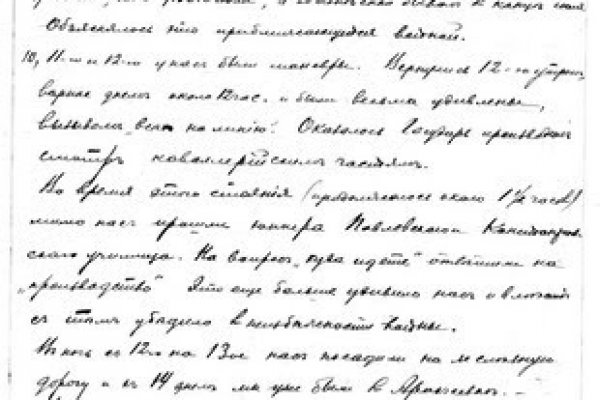 Объяснялось это приближающейся войной.
10, 11-го и 12-го у нас были маневры. Вернулись 12-го утром,
вернее днем около 12 час. и были весьма удивлены,
вызовом "всех на линию". Оказалось Государь производил
смотр кавалерийским частям.
Во время этого стояния (продолжалось около 1½ часов)
мимо нас прошли юнкера Павловского Константинов-
ского училища. На вопрос "куда идете" ответили на
"производство" Это еще больше удивило нас и вместе
с тем убедило в неизбежности войны.
В ночь с 12го на 13ое нас посадили на железную
дорогу и 14 днем мы уже были в